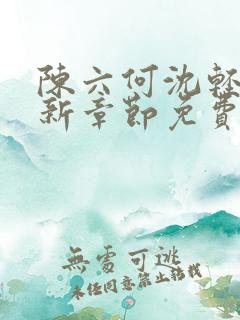 陳六何沈輕
新章節免費
無處可逃
未經同意禁止轉載